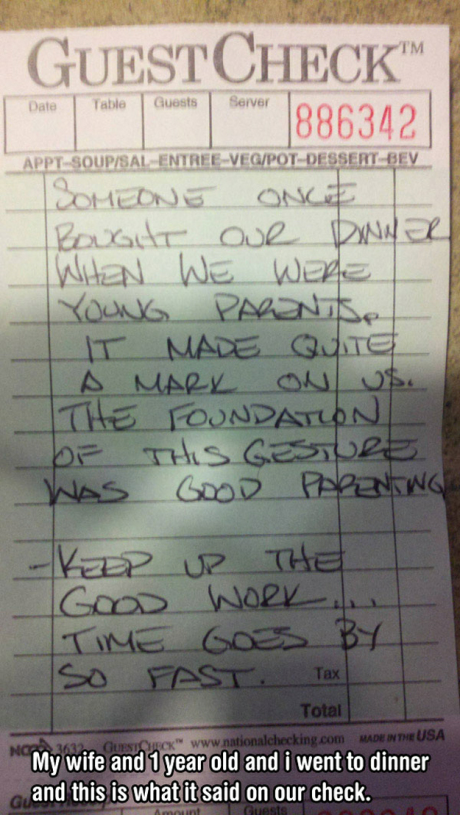 GUEST CHECK™
Date Table Guests Server
886342
APPT-SOUP/SAL-ENTREE-VEG/POT-DESSERT-BEV
SOMEONE ONCE
BOUGHT OUR DINNER
WHEN WE WERE
YOUNG PARENTS.
IT MADE QUITE
A MARK ON US.
THE FOUNDATION
OF THIS GESTURE
WAS GOOD PARENTING
- KEEP UP THE
GOOD WORK...
TIME GOES BY
SO FAST. Tax
Total
3632 GUESTCHECK™ www.nationalchecking.com MADE IN THE USA
My wife and 1 year old and i went to dinner
and this is what it said on our check.
Amount Guests